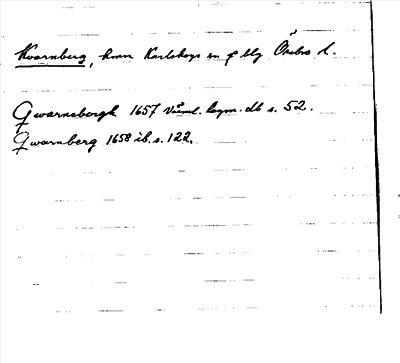 Kvarnberg, hmn Karlskoga sn o blg Örebro l.
Qwarnabergh 1657 Värml. lagm. db s. 52.
Qwarnberg 1658 ib. s. 122.